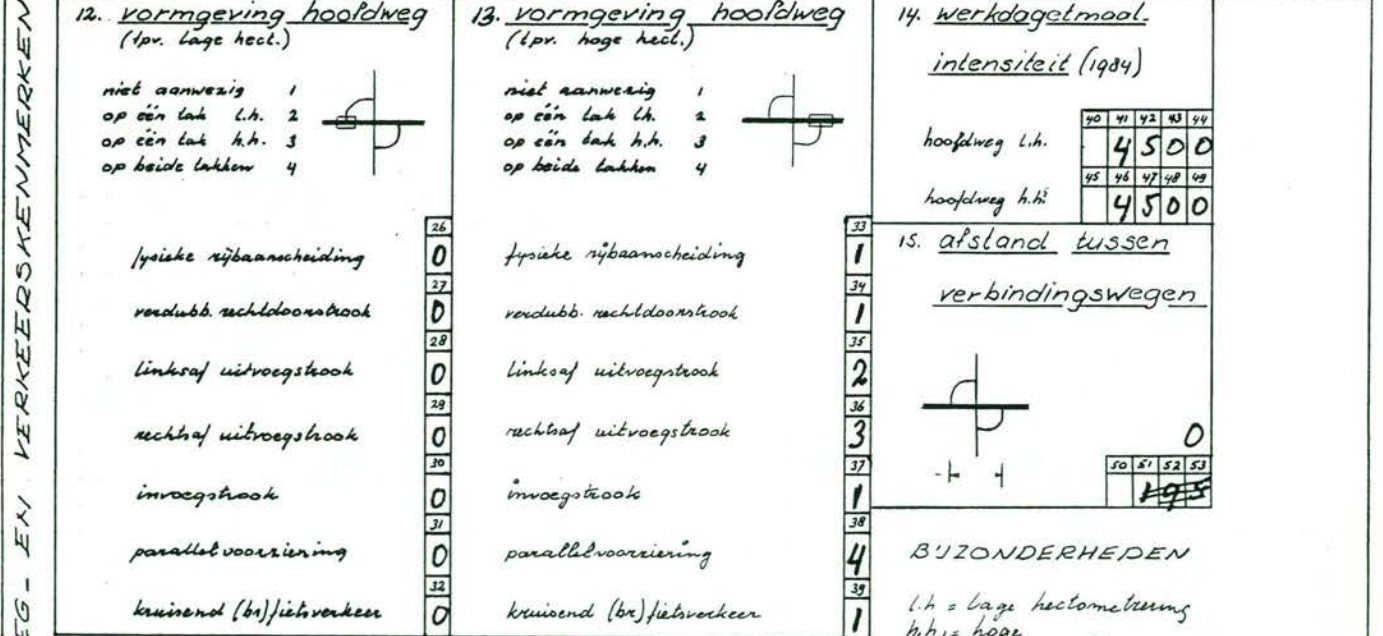 EG - EN VERKEERSKENMERKEN
12. vormgeving hoofdweg
(tpv. lage hect.)
niet aanwezig 1
op één tak l.h. 2
op één tak h.h. 3
op beide takken 4
26
fysieke rijbaanscheiding 0
27
verdubb. rechtdoorstrook 0
28
linksaf uitvoegstrook 0
29
rechtsaf uitvoegstrook 0
30
invoegstrook 0
31
parallelvoorziening 0
32
kruisend (br)fietsverkeer 0
13. vormgeving hoofdweg
(tpv. hoge hect.)
niet aanwezig 1
op één tak l.h. 2
op één tak h.h. 3
op beide takken 4
33
fysieke rijbaanscheiding 1
34
verdubb. rechtdoorstrook 1
35
linksaf uitvoegstrook 2
36
rechtsaf uitvoegstrook 3
37
invoegstrook 1
38
parallelvoorziening 4
39
kruisend (br)fietsverkeer 1
14. werkdagetmaal-
intensiteit (1984)
40 41 42 43 44
hoofdweg l.h. 4 5 0 0
45 46 47 48 49
hoofdweg h.h. 4 5 0 0
15. afstand tussen
verbindingswegen
0
50 51 52 53
195
BIJZONDERHEDEN
l.h = lage hectometrering
h.h. = hoge